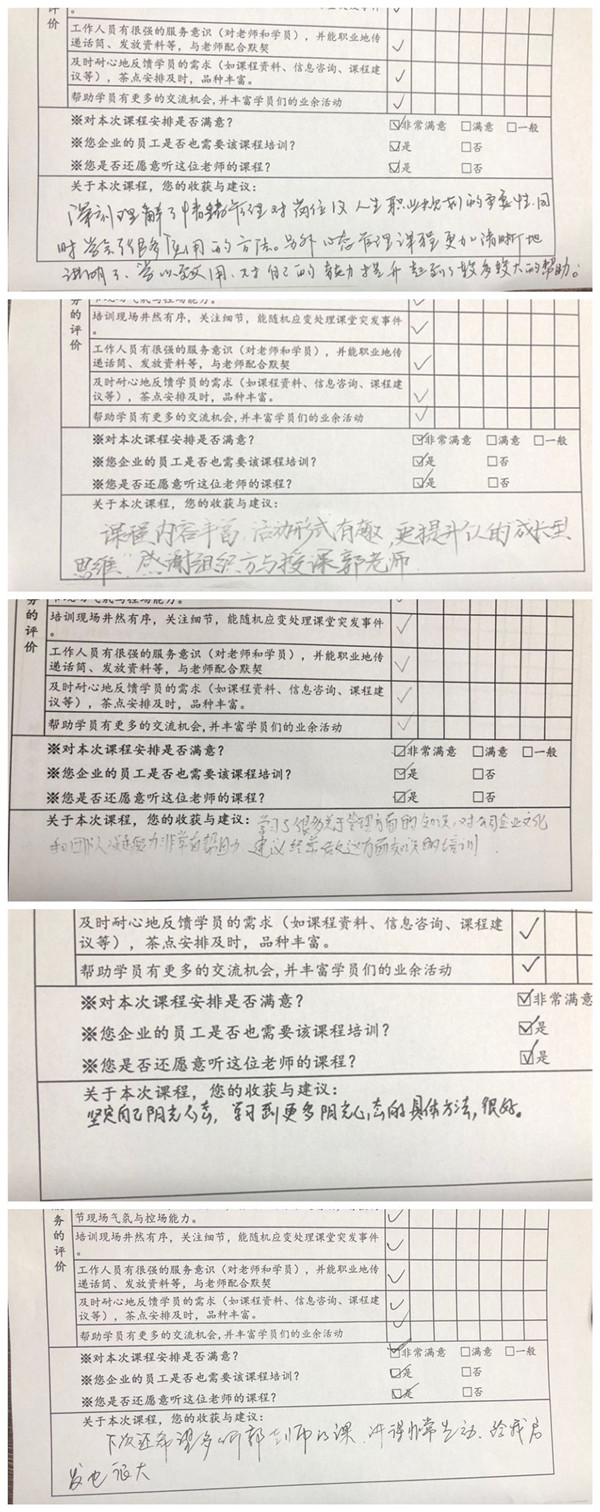 评价
工作人员有很强的服务意识（对老师和学员），并能职业地传
递话筒、发放资料等，与老师配合默契
及时耐心地反馈学员的需求（如课程资料、信息咨询、课程建
议等），茶点安排及时，品种丰富。
帮助学员有更多的交流机会,并丰富学员们的业余活动
※对本次课程安排是否满意？ 非常满意 满意 一般
※您企业的员工是否也需要该课程培训？ 是 否
※您是否还愿意听这位老师的课程？ 是 否
关于本次课程，您的收获与建议：
深刻理解了情绪管理对岗位及人生职业规划的重要性.同
时学会了很多使用的方法。另外心态管理课程更加清晰地
学以致用、对自己的能力提升起到了较大的帮助。
务的评价
培训现场井然有序，关注细节，能随机应变处理课堂突发事件
。
工作人员有很强的服务意识（对老师和学员），并能职业地传
递话筒、发放资料等，与老师配合默契
及时耐心地反馈学员的需求（如课程资料、信息咨询、课程建
议等），茶点安排及时，品种丰富。
帮助学员有更多的交流机会,并丰富学员们的业余活动
※对本次课程安排是否满意？ 非常满意 满意 一般
※您企业的员工是否也需要该课程培训？ 是 否
※您是否还愿意听这位老师的课程？ 是 否
关于本次课程，您的收获与建议：
课程内容丰富，活动形式有趣，更提升个人的成长型
思维，感谢组织方与授课郭老师
务的评价
培训现场井然有序，关注细节，能随机应变处理课堂突发事件
。
工作人员有很强的服务意识（对老师和学员），并能职业地传
递话筒、发放资料等，与老师配合默契
及时耐心地反馈学员的需求（如课程资料、信息咨询、课程建
议等），茶点安排及时，品种丰富。
帮助学员有更多的交流机会,并丰富学员们的业余活动
※对本次课程安排是否满意？ 非常满意 满意 一般
※您企业的员工是否也需要该课程培训？ 是 否
※您是否还愿意听这位老师的课程？ 是 否
关于本次课程，您的收获与建议：学习了很多关于管理方面的知识，对公司企业文化
和团队凝聚力非常有帮助 建议经常做这方面知识的培训.
及时耐心地反馈学员的需求（如课程资料、信息咨询、课程建
议等），茶点安排及时，品种丰富。
帮助学员有更多的交流机会,并丰富学员们的业余活动
※对本次课程安排是否满意？ 非常满意
※您企业的员工是否也需要该课程培训？ 是
※您是否还愿意听这位老师的课程？ 是
关于本次课程，您的收获与建议：
坚定自己阳光心态，学习到更多阳光心态的具体方法，很好。
务的评价
节现场气氛与控场能力。
培训现场井然有序，关注细节，能随机应变处理课堂突发事件
。
工作人员有很强的服务意识（对老师和学员），并能职业地传
递话筒、发放资料等，与老师配合默契
及时耐心地反馈学员的需求（如课程资料、信息咨询、课程建
议等），茶点安排及时，品种丰富。
帮助学员有更多的交流机会,并丰富学员们的业余活动
※对本次课程安排是否满意？ 非常满意 满意 一般
※您企业的员工是否也需要该课程培训？ 是 否
※您是否还愿意听这位老师的课程？ 是 否
关于本次课程，您的收获与建议：
下次还希望多听郭老师的课、讲课非常生动、给我启
发也很大